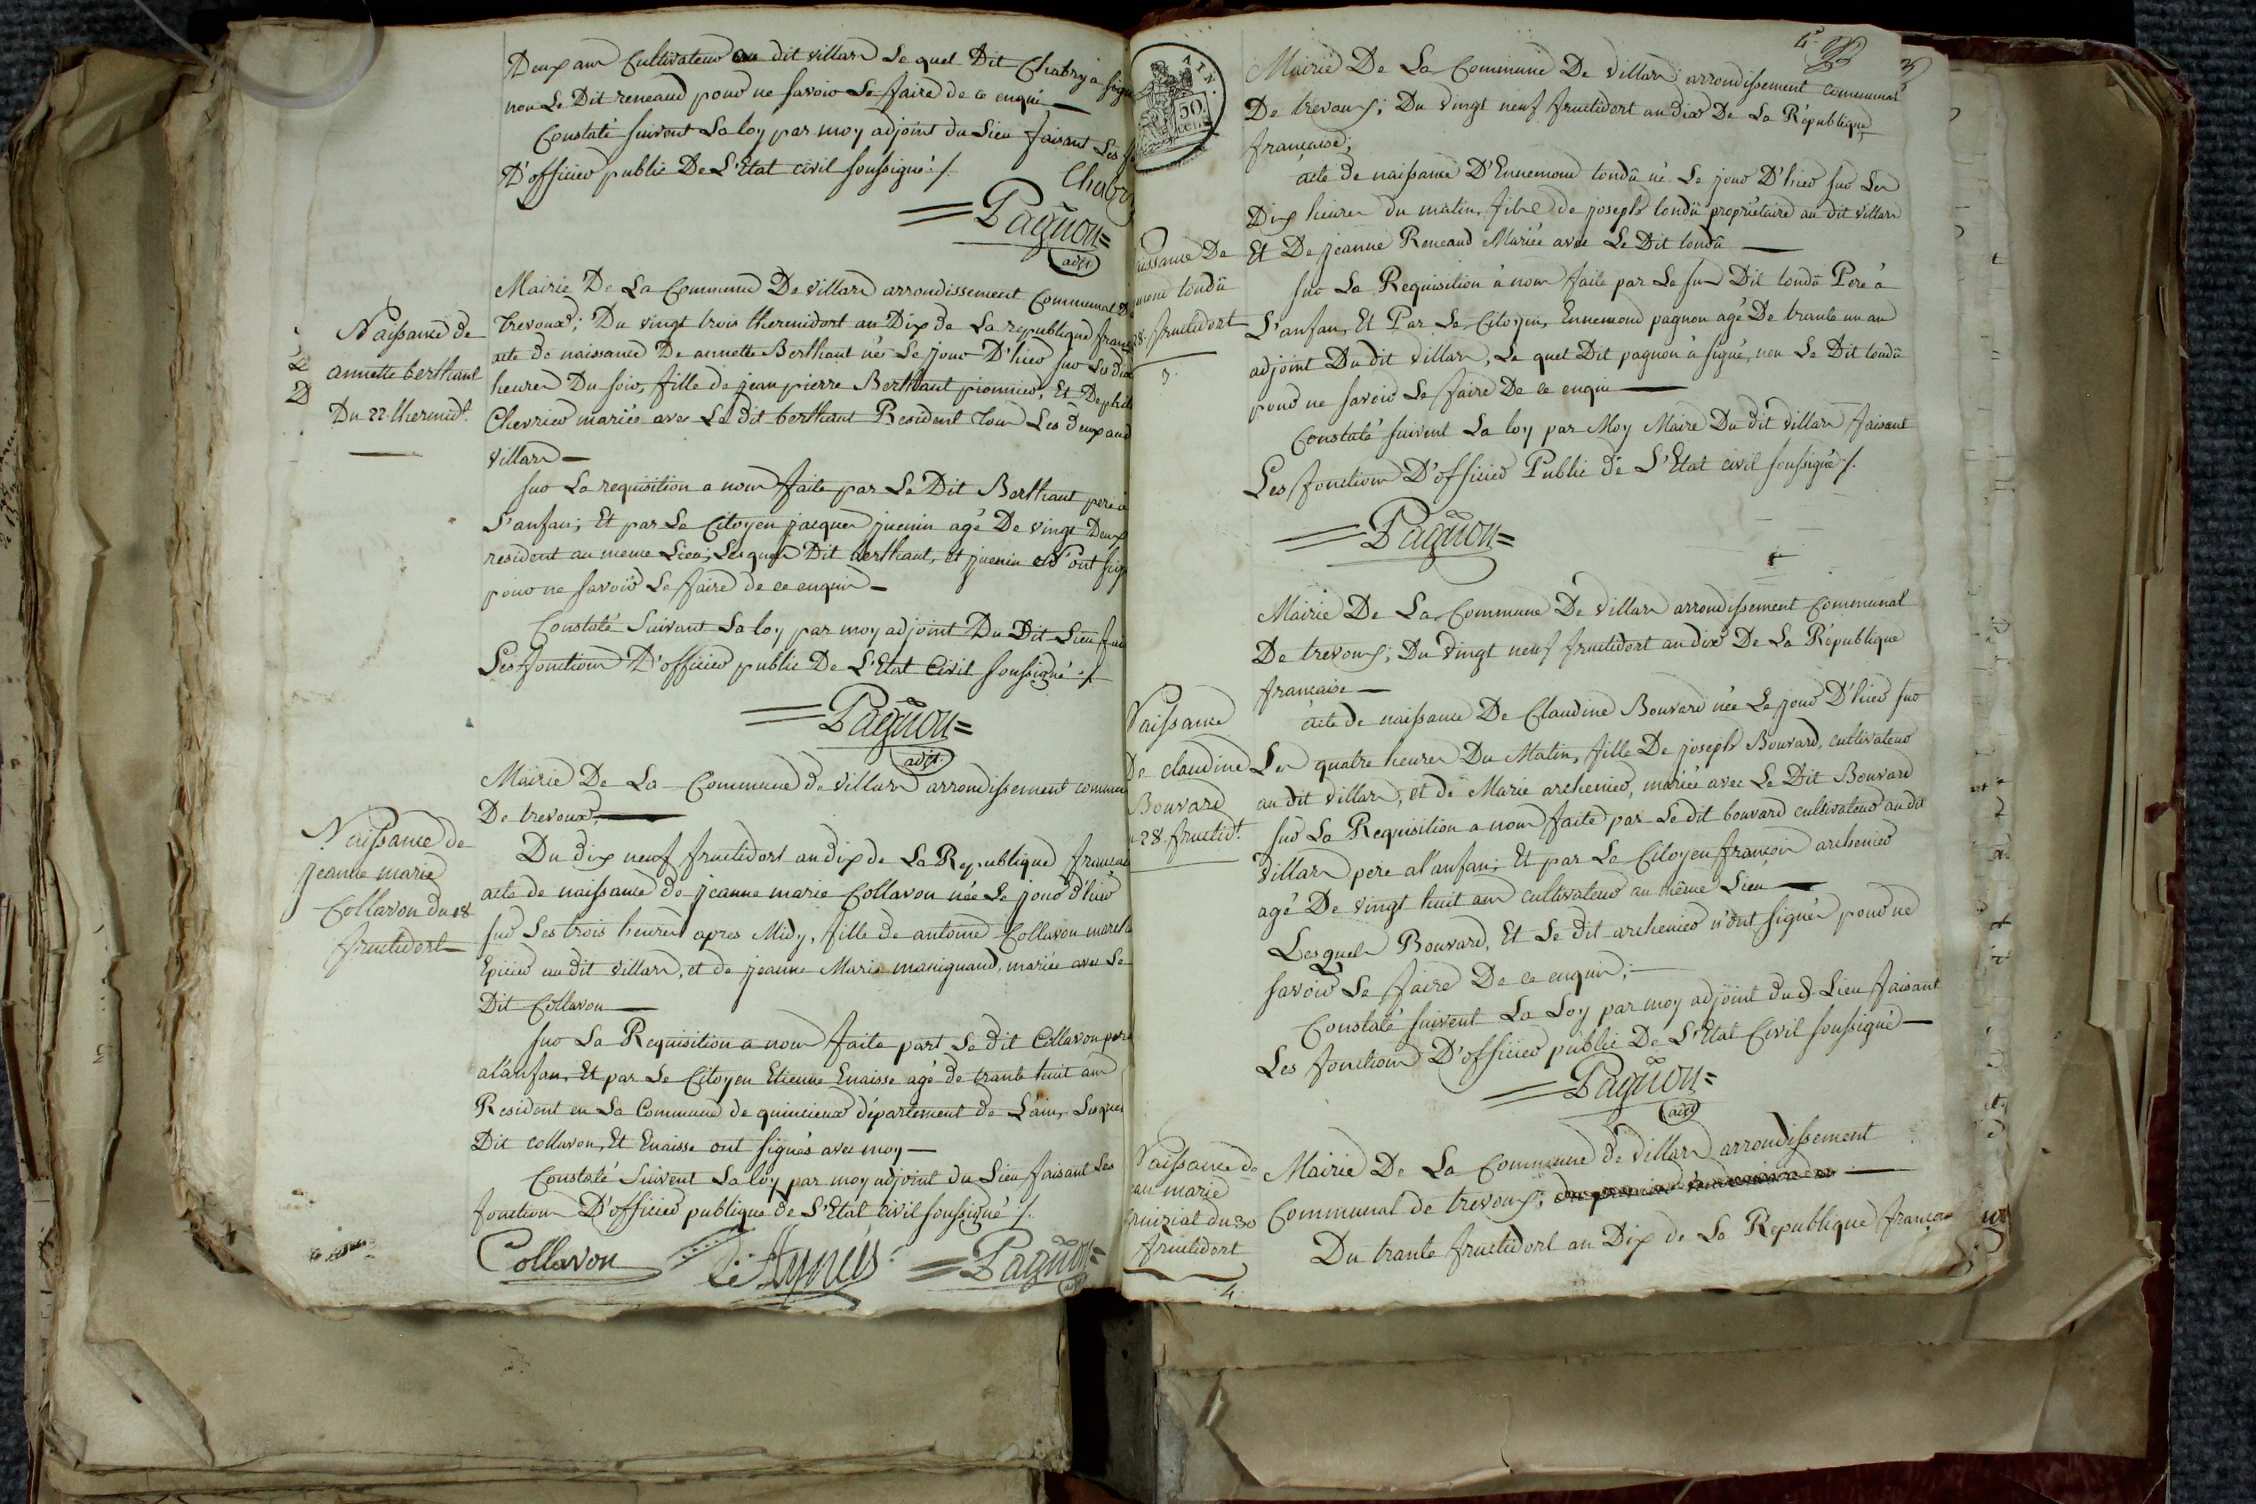 Deux ans Cultivateur au dit villard Le quel Dit Chabry à signé
non Le Dit reneaud pour ne savoir Le faire de ce enquis
Constaté suivent La loy par moy adjoint du Lieu faisant Les
D'officier public De L'Etat civil soussigné ./.
Chabry
Pagnon
adjt
Naissance de
annette berthaut
Du 22. thermidt.
Mairie De La Commune De villard arrondissement Communal De
trevoux; Du vingt trois thermidort an Dix de La republique française
acte de naissance De annette Berthaut née Le jour D'hier sur Les dix
heures Du soir, fille de jean pierre Berthaut pionnier, Et De
Chevrier mariée avec Le dit berthaut Resident tous Les deux au d
villard
sur La requisition a nous faite par Le Dit Berthaut pere à
L'anfan; Et par Le Citoyen jacques juenin agé De vingt Deux
resident au meme Lieu; Lesquels Dit berthaut, et juenin n'ont sig
pour ne savoir Le faire de ce enquis
Constaté Suivant La loy par moy adjoint Du Dit Lieu fai
Les fonctions D'officier public De L'Etat Civil soussigné ./.
Pagnon
adjt.
Naissance de
jeanne marie
Collavon du 18
fructidort
Mairie De La Commune de villard arrondissement commun
De trevoux;
Du dix neuf fructidort an dix de La Republique francaise
acte de naissance de jeanne marie Collavon née Le jour d'hier
sur Les trois heures apres Midy, fille de antoine Collavon march
Epicier au dit villard, et de jeanne Marie maniguand, mariée avec Le
Dit Collavon
sur La Requisition a nous faite part Le dit Collavon pere
al'anfan, Et par Le Citoyen Etienne Enaisse agé de trante huit ans
Resident en La Commune de quincieux département de L'ain, Lesquels
Dit collavon, Et Enaisse ont signés avec moy
Constaté Suivent La loy par moy adjoint du Lieu faisant Les
fonctions D'officier publique de L'Etat civil soussigné ./.
Collavon
Pagnon
adjt
4
50
cen
Mairie De La Commune De villard arrondissement communal
De trevoux; Du vingt neuf fructidort an dix De La République
française,
aissance De
mond tondû
28. fructidort
3.
acte de naissance D'Ennemond tondû né Le jour D'hier sur Les
Dix heures du matin, fils de joseph tondû proprietaire au dit villard
Et De jeanne Reneaud Mariée avec Le Dit tondû
sur La Requisition à nous faite par Le sus Dit tondû Pere à
L'anfan, Et Par Le Citoyen, Ennemond pagnon agé De trante un an
adjoint Du dit villard, Le quel Dit pagnon à signé, non Le Dit tondû
pour ne savoir Le faire De ce enquis
Constaté suivent La loy par Moy Maire Du dit villard faisant
Les fonctions D'officier Public de L'Etat civil soussigné ./.
Pagnon
Mairie De La Commune De villard arrondissement Communal
De trevoux; Du vingt neuf fructidort an dix De La République
française
Naissance
De claudine
Bouvard
28. fructidt.
acte de naissance De Claudine Bouvard née Le jour D'hier sur
Les quatre heures Du Matin, fille De joseph Bouvard, cultivateur
au dit villard, et de Marie archenier, mariée avec Le Dit Bouvard
sur La Requisition a nous faite par Le dit bouvard cultivateur au dit
villard pere al'anfan; Et par Le Citoyen françois archenier
agé De vingt huit ans cultivateur au même Lieu
Lesquels Bouvard, Et Le dit archenier n'ont signés pour ne
savoir Le faire De ce enquis;
Constaté suivent La Loy par moy adjoint du d. Lieu faisant
Les fonctions D'officier public De L'Etat Civil soussigné
Pagnon
adjt
Naissance de
marie
du 30
fructidort
4.
Mairie De La Commune de villard arrondissement
Communal de trevoux;
Du trante fructidort an Dix de La Republique françoise